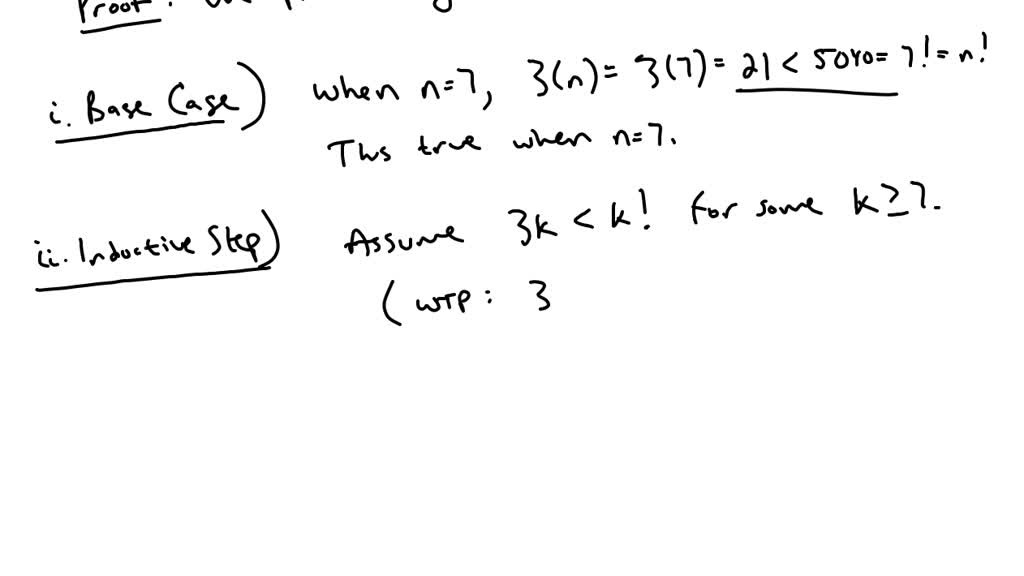 Proof:
i. Base Case) when n=7, 3(n)= 3(7)= 21 < 5040= 7!= n!
Ths true when n=7.
ii. Inductive Step) Assume 3k < k! for some k≥7.
(WTP: 3